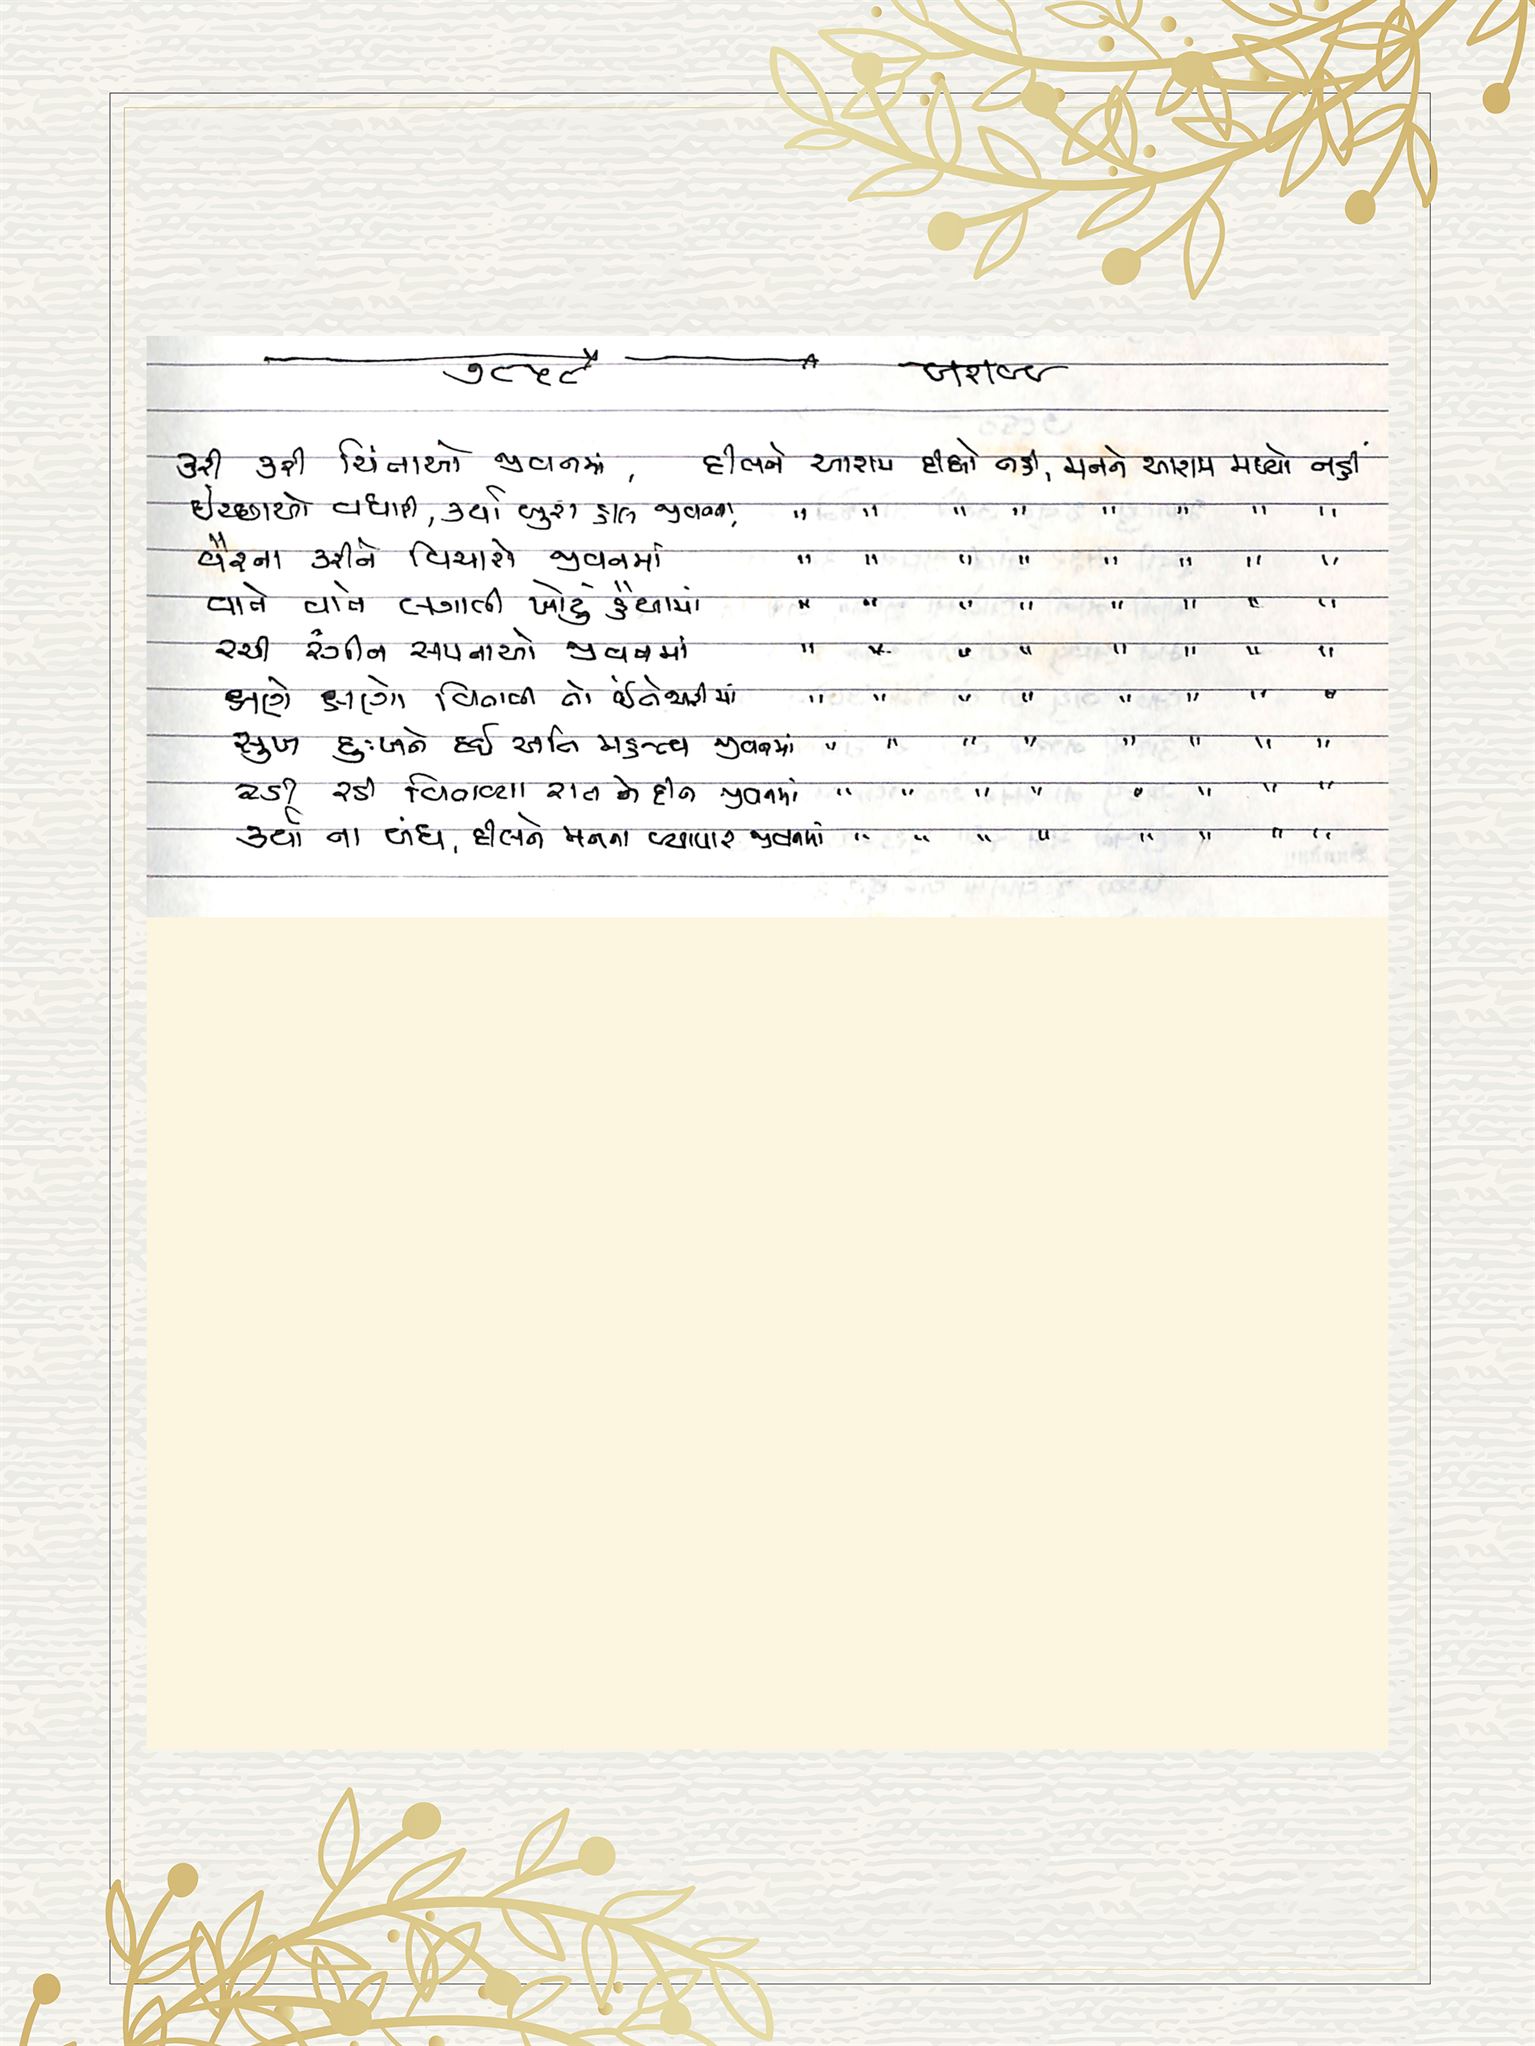 ૭૮૫૮
કરી કરી ચિંતાઓ જીવનમાં, દીલને આરામ દીધો નહી, મનને આરામ મળ્યો નહીં
ઈચ્છાઓ વધારી, કર્યા બુરા હાલ જીવનના, " " " " " " " "
વૈરના કરીને વિચારો જીવનમાં " " " " " " " "
વાતે વાતે લગાવી ખોટું હૈયામાં " " " " " " " "
રચી રંગીન સપનાઓ જીવનમાં " " " " " " " "
ક્ષણે ક્ષણો વિતાવી તો ઈંતેજારીમાં " " " " " " " "
સુખ દુઃખને દઈ અતિ મહત્ત્વ જીવનમાં " " " " " " " "
રડી રડી વિતાવ્યા રાત કે દીન જીવનમાં " " " " " " " "
કર્યા ના બંધ, દીલને મનના વ્યાપાર જીવનમાં " " " " " " " "